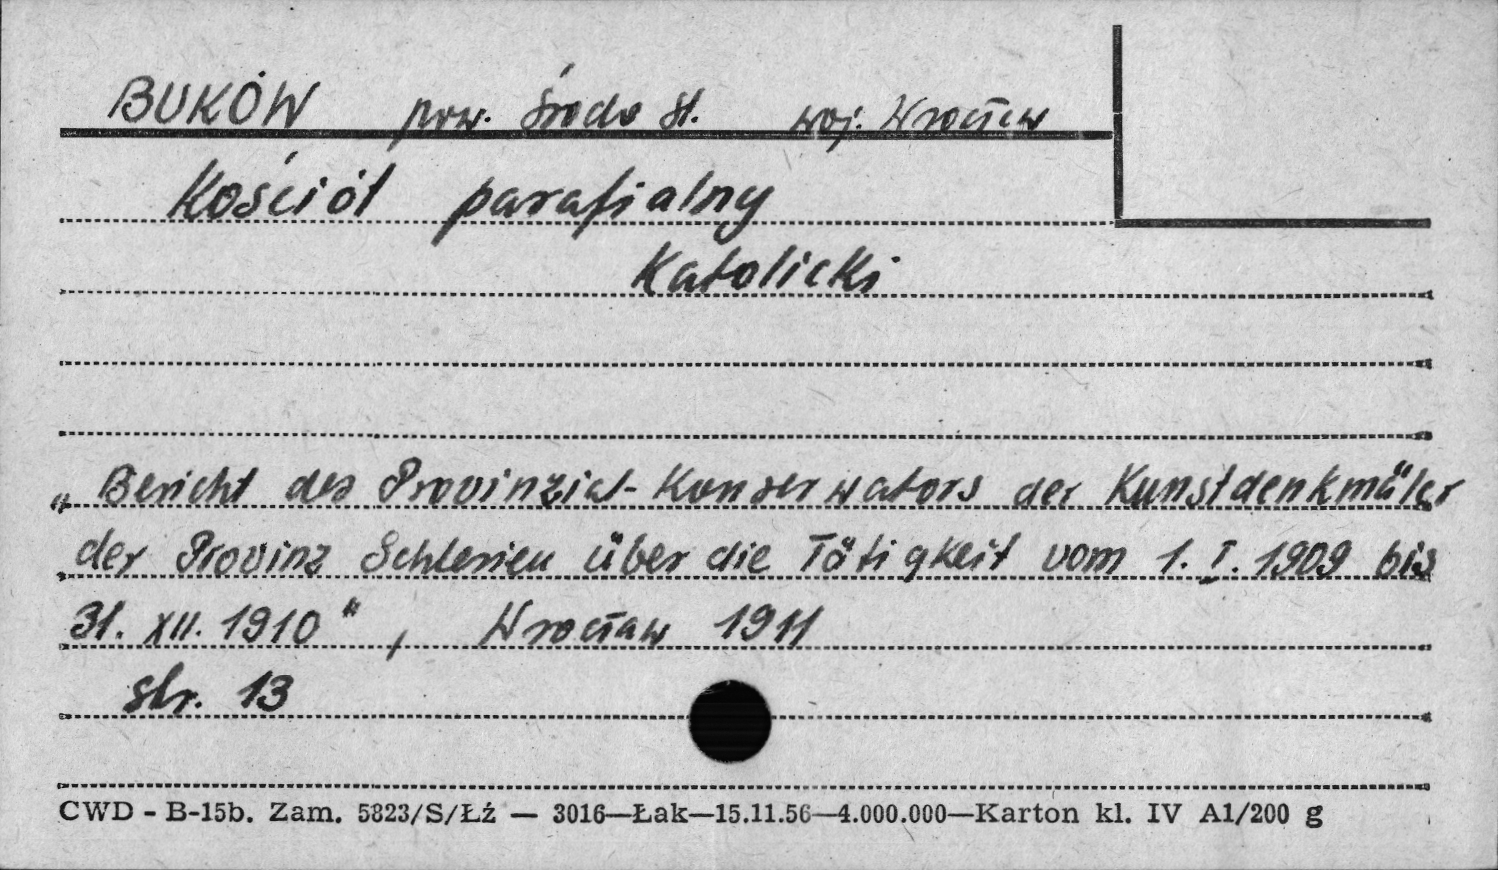 BUKÓW pow. Środa Śl. woj. Wrocław
Kościół parafialny
Katolicki
„Bericht des Provinzial-Konserwators der Kunstdenkmäler
der Provinz Schlesien über die Tätigkeit vom 1. I. 1909 bis
31. XII. 1910", Wrocław 1911
str. 13
CWD - B-15b. Zam. 5823/S/Łź — 3016—Łak—15.11.56—4.000.000—Karton kl. IV A1/200 g